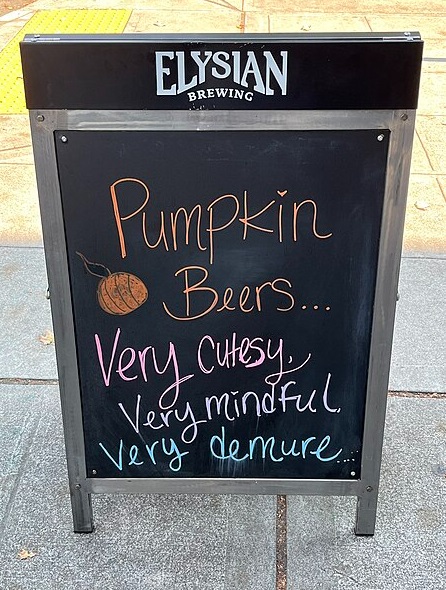 ELYSIAN
BREWING
Pumpkin
Beers...
Very cutesy,
Very mindful.
Very demure...